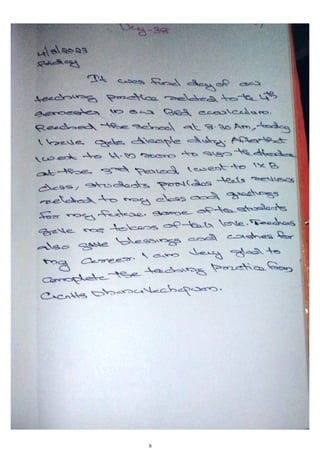 Day-38
4/8/2023
Friday
It was final day of our
teaching practice related to the 4th
semester in our Bed ccurriculum.
Reached the school at 8:30 Am, today
I have gate disciple duty. After that
I went to H.M room to sign the
at the 3rd period I went to IX B
class, students provides their reviews
related to my class and greetings
for my future. Some of the students
gave me tokens of their love. Teachers
also gave blessings and wishes for
my Career. I am very glad to
Complete the teaching practice from
6